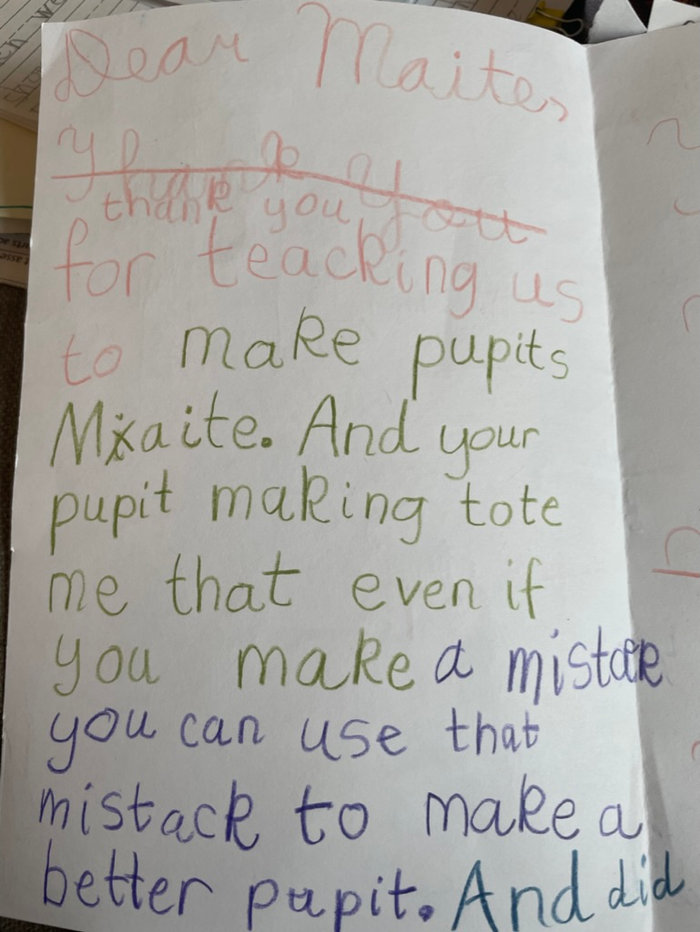 Dear Maite,
Thank You
thank you
for teacking us
to make pupits
Maite. And your
pupit making tote
me that even if
you make a mistake
you can use that
mistack to make a
better pupit. And did